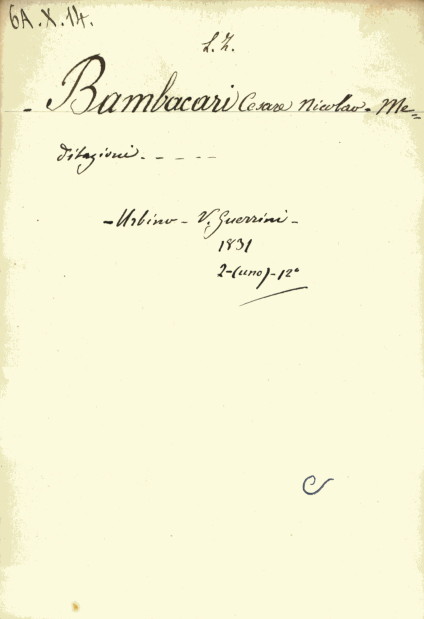 6A.X.14.
L.Z.
- Bambacari Cesare Nicolao. Me=
ditazioni. - - - -
- Urbino - V. Guerrini -
1831
2-(uno)-12°